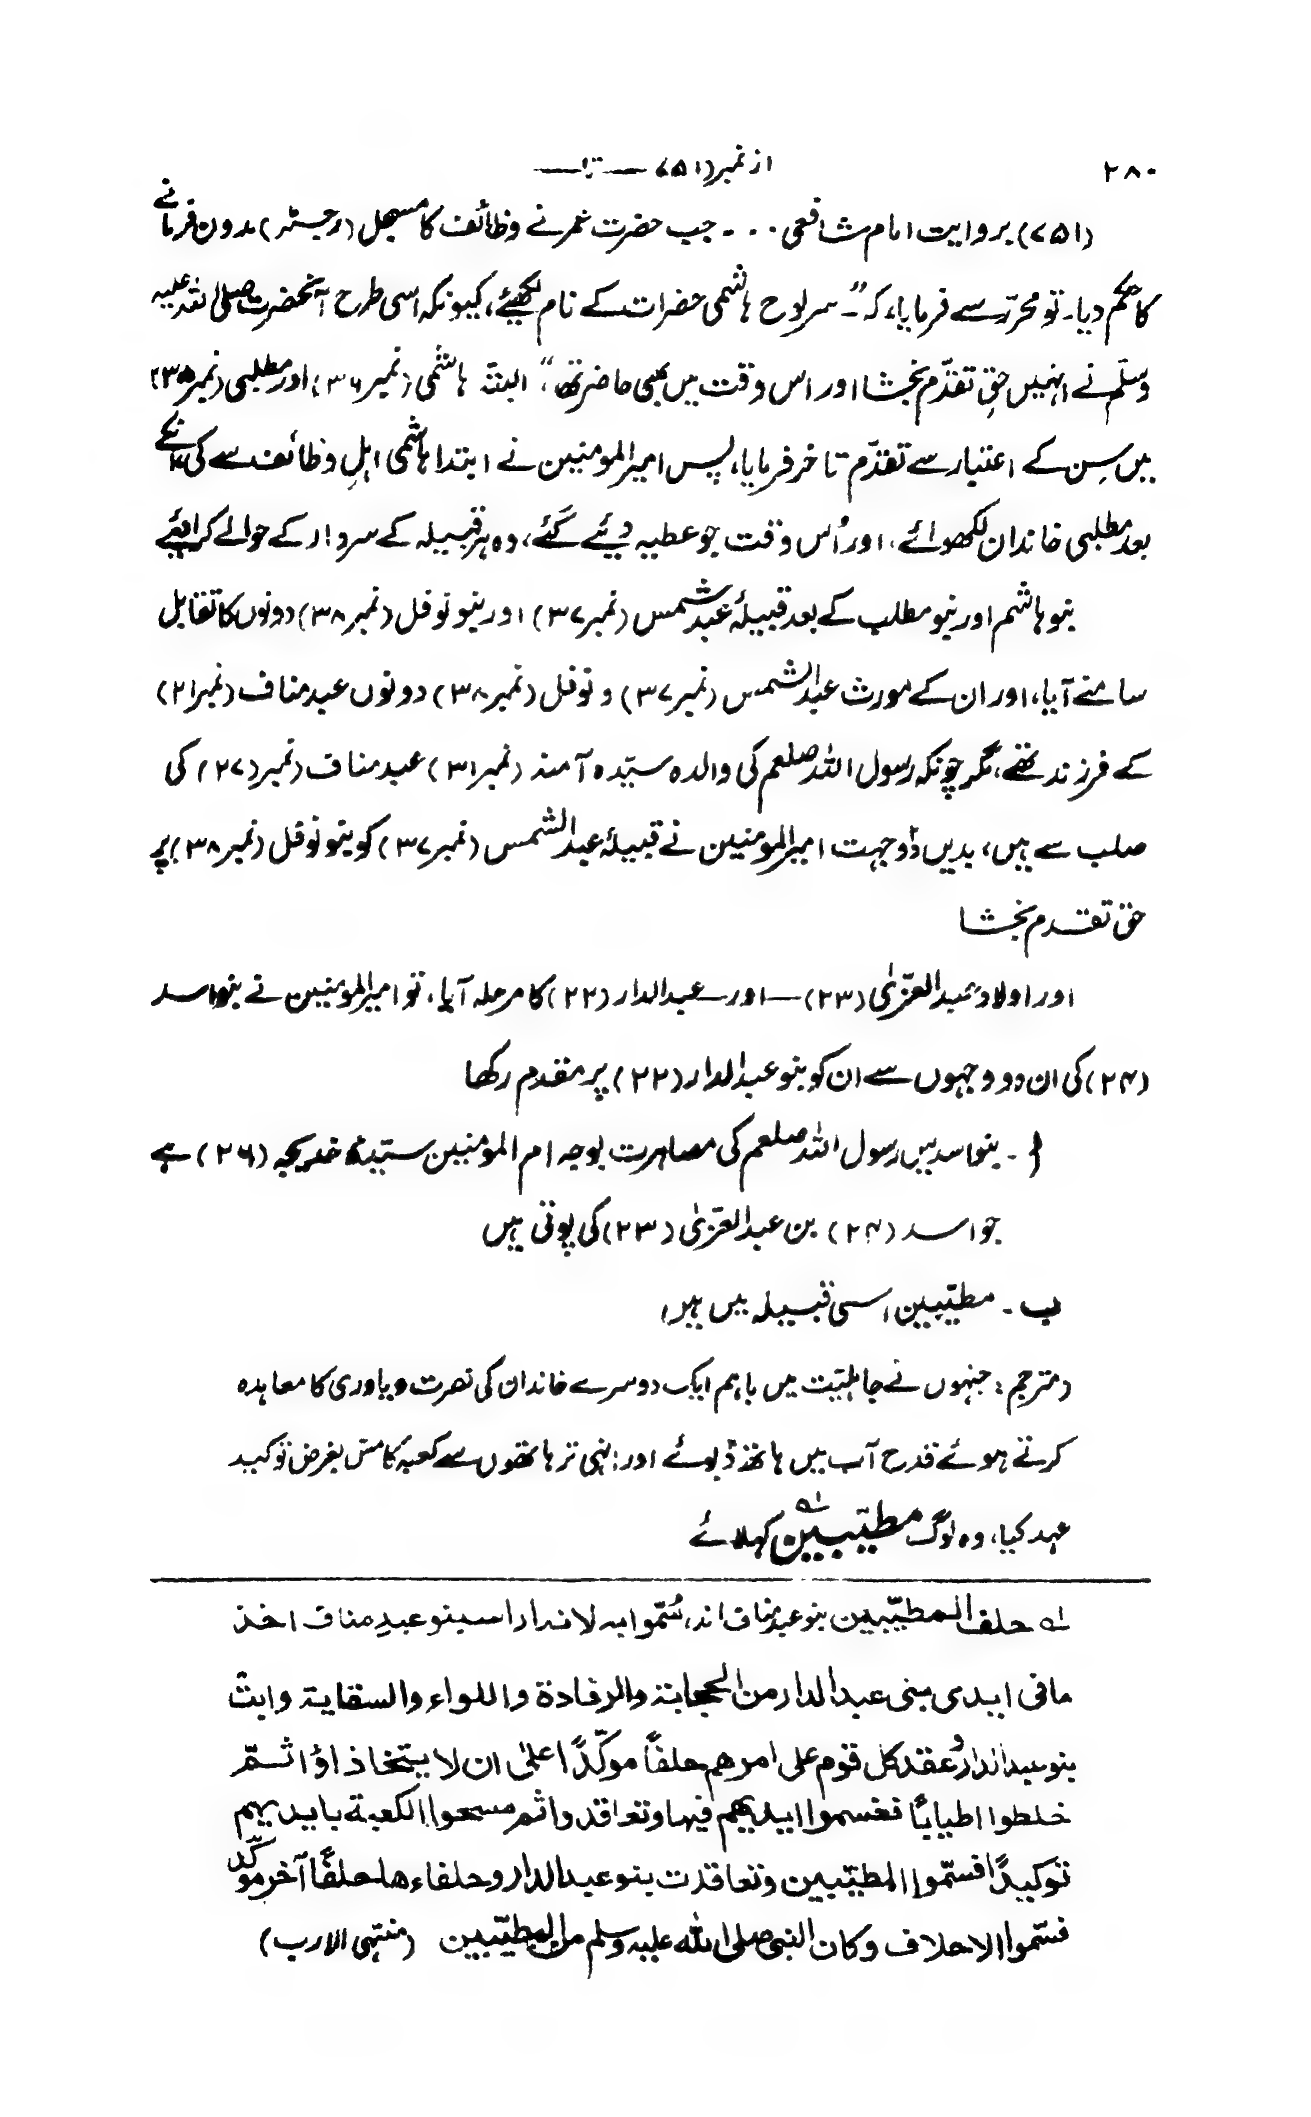 ۲۸۰ از نمبر (۷۵۱) —— تا ——
(۷۵۱) بروایت امام شافعی ۔ ۔ ۔ جب حضرت عمر نے وظائف کا مسجل (رجسٹر) مدون فرمانے
کا حکم دیا۔ تو محرّر سے فرمایا، کہ ”۔ سر لوح ہاشمی حضرات کے نام لکھیئے، کیونکہ اسی طرح آنحضرت صلی اللہ علیہ
وسلّم نے انہیں حقِ تقدّم بخشا اور اس وقت میں بھی حاضر تھا“، البتہ ہاشمی (نمبر ۳۶) اور مطلبی (نمبر ۳۵)
میں سِن کے اعتبار سے تقدّم تاخر فرمایا، پس امیر المومنین نے ابتدا ہاشمی اہلِ وظائف سے کی انکے
بعد مطلبی خاندان لکھوائے، اور اُس وقت جو عطیہ دیئے گئے، وہ ہر قبیلہ کے سردار کے حوالے کرائیے
بنو ہاشم اور بنو مطلب کے بعد قبیلۂ عبد شمس (نمبر ۳۷) اور بنو نوفل (نمبر ۳۸) دونوں کا تقابل
سامنے آیا، اور ان کے مورث عبد الشمس (نمبر ۳۷) و نوفل (نمبر ۳۸) دونوں عبد مناف (نمبر ۲۱)
کے فرزند تھے، مگر چونکہ رسول اللہ صلعم کی والدہ سیّدہ آمنہ (نمبر ۳۱) عبد مناف (نمبر (۲۷) کی
صلب سے ہیں، بدیں وجہت امیر المومنین نے قبیلۂ عبد الشمس (نمبر ۳۷) کو بنو نوفل (نمبر ۳۸) پر
حق تقدم بخشا
اور اولاد عبد العزّٰی (۲۳) — اور — عبد الدار (۲۲) کا مرحلہ آیا، تو امیر المومنین نے بنو اسد
(۲۴) کی ان دو وجہوں سے ان کو بنو عبد الدار (۲۲) پر مقدم رکھا
ا ۔ بنو اسد میں رسول اللہ صلعم کی مصاہرت بوجہ ام المومنین سیّدہ خدیجہ (۲۶) ہے
جو اسد (۲۴) بن عبد العزّٰی (۲۳) کی پوتی ہیں
ب ۔ مطیّبین اسی قبیلہ میں ہیں
(مترجم: جنہوں نے جاہلیّت میں باہم ایک دوسرے خاندان کی نصرت و یاوری کا معاہدہ
کرتے ہوئے قدح آب میں ہاتھ ڈبوئے اور انہی تر ہاتھوں سے کعبہ کا مس بغرض توکید
عہد کیا، وہ لوگ مطیّبین لہ کہلائے
لہ حلف المطیّبین بنو عبد مناف اند، سُمّوا بہ لانہ اراد بنو عبدِ مناف اخذ
ما فی ایدی بنی عبد الدار من الحجابۃ والرفادۃ واللواء والسقایۃ وابت
بنو عبد الدار وعقد کل قوم علی امرھم حلفاً موکّدًا علیٰ ان لا یتخاذلوا ثمّ
خلطوا اطیابًا فغسموا ایدیھم فیھا وتعاقدوا ثم مسحوا الکعبۃ بایدیہم
توکیدًا فسمّوا المطیّبین وتعاقدت بنو عبد الدار وحلفاءھا حلفًا آخر موکّدا
فسمّوا الاحلاف وکان النبی صلی اللہ علیہ وسلم من المطیّبین (منتہی الارب)